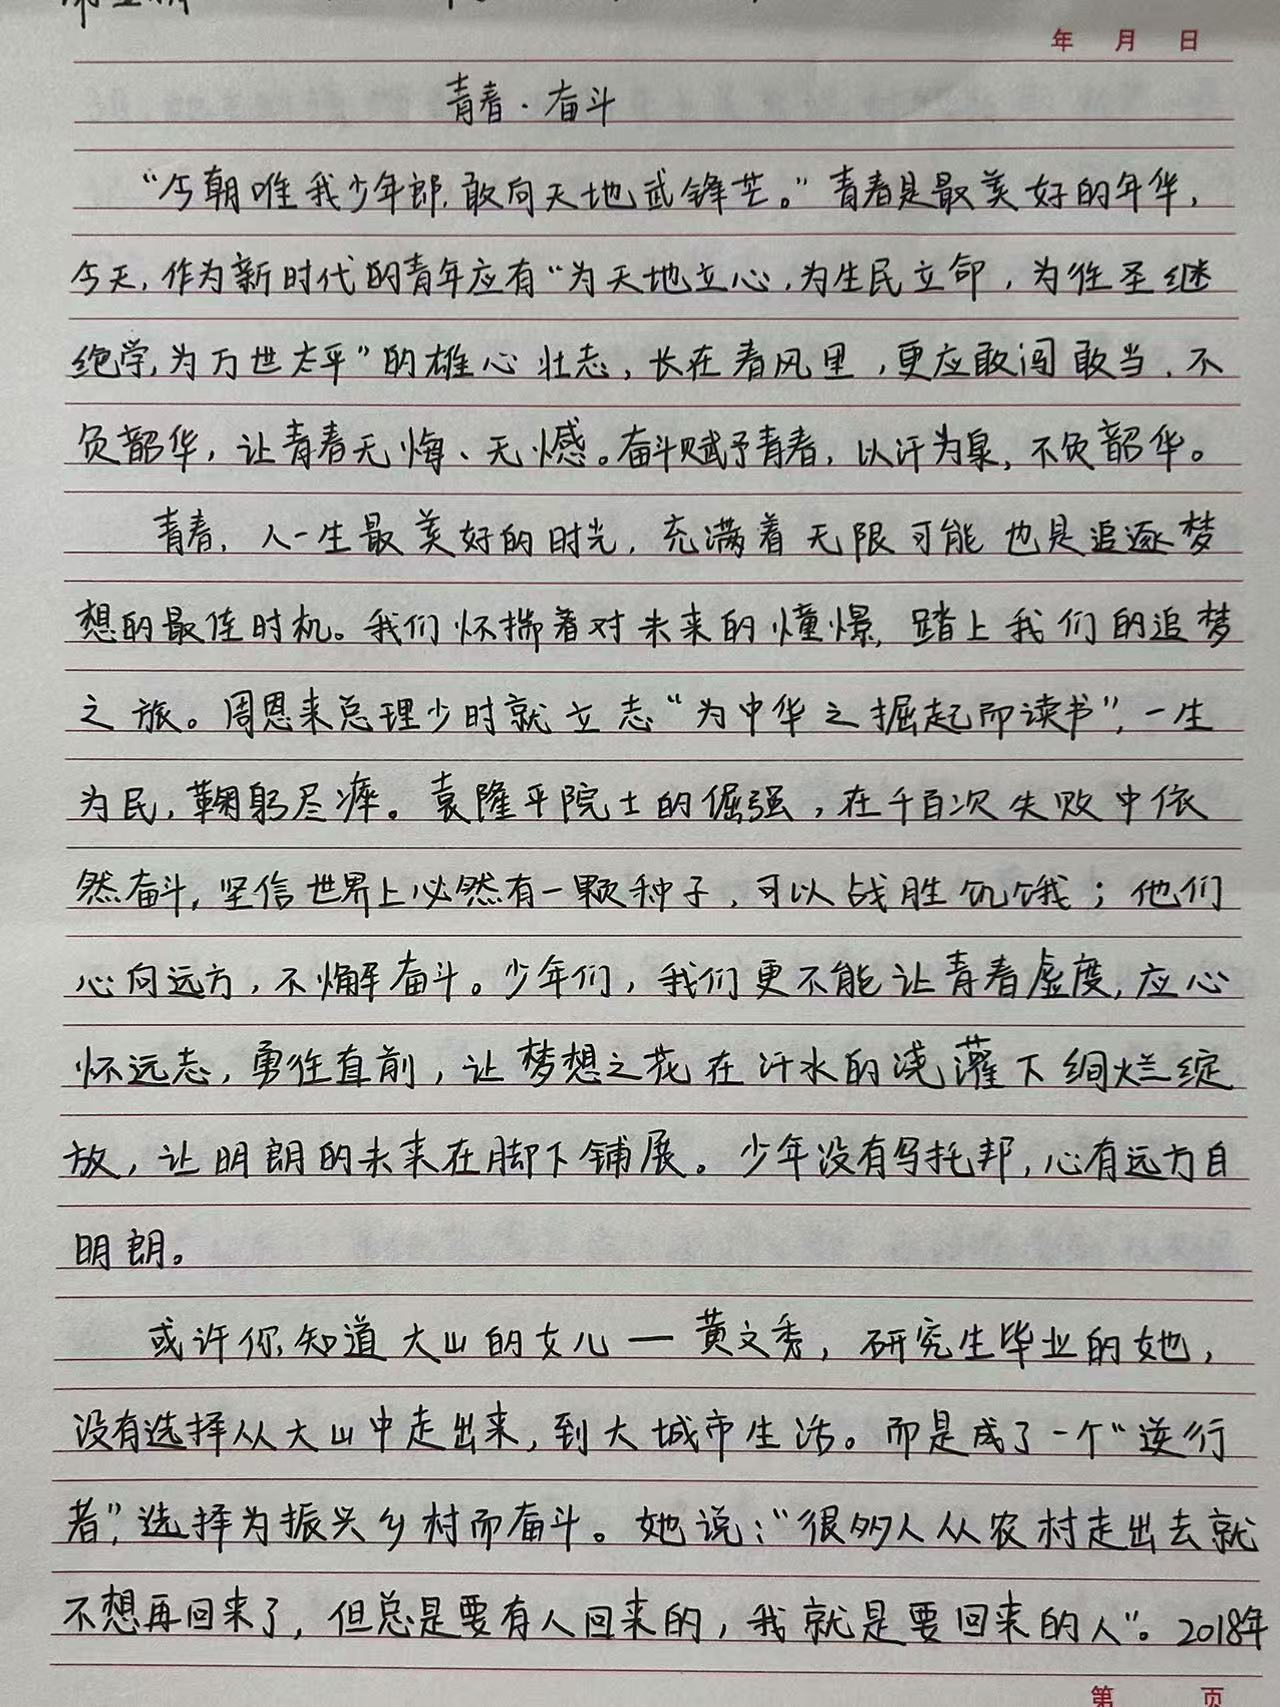 年 月 日
青春·奋斗
“今朝唯我少年郎,敢向天地试锋芒。”青春是最美好的年华,
今天,作为新时代的青年应有“为天地立心,为生民立命,为往圣继
绝学,为万世太平”的雄心壮志,长在春风里,更应敢闯敢当,不
负韶华,让青春无悔、无憾。奋斗赋予青春,以汗为泉,不负韶华。
青春,人一生最美好的时光,充满着无限可能也是追逐梦
想的最佳时机。我们怀揣着对未来的憧憬,踏上我们的追梦
之旅。周恩来总理少时就立志“为中华之掘起而读书”,一生
为民,鞠躬尽瘁。袁隆平院士的倔强,在千百次失败中依
然奋斗,坚信世界上必然有一颗种子,可以战胜饥饿;他们
心向远方,不懈奋斗。少年们,我们更不能让青春虚度,应心
怀远志,勇往直前,让梦想之花在汗水的浇灌下绚烂绽
放,让明朗的未来在脚下铺展。少年没有乌托邦,心有远方自
明朗。
或许你知道大山的女儿—黄文秀,研究生毕业的她,
没有选择从大山中走出来,到大城市生活。而是成了一个“逆行
者”,选择为振兴乡村而奋斗。她说:“很多人从农村走出去就
不想再回来了,但总是要有人回来的,我就是要回来的人”。2018年
第 页